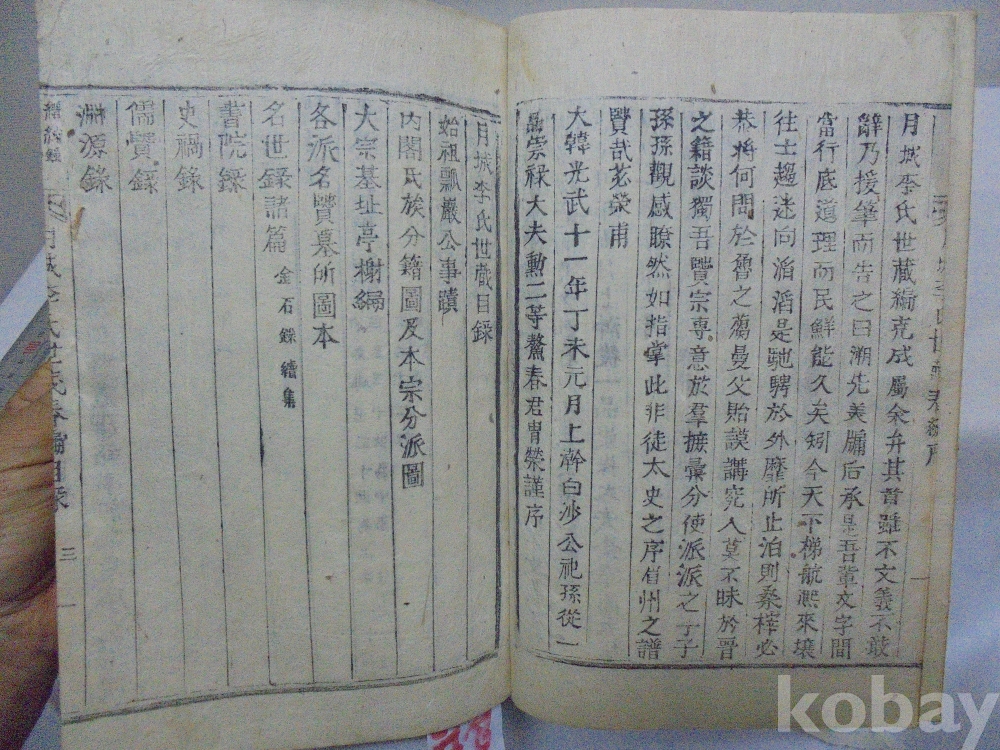 月城李氏世藏編克成屬余弁其首雖不文義不敢
辭乃援筆而告之曰溯先美牖后承是吾輩文字間
當行底道理而民鮮能久矣矧今天下梯航凞來壤
往士趨迷向滔滔是馳騁於外靡所止泊則桑梓必
恭將何問於魯之蔓父貽謨講究人莫不昧於晉
之籍談獨吾賢宗專意於羣摭彙分使派派之子子
孫孫觀感瞭然如指掌此非徒太史之序眉州之譜
賢哉苾榮甫
大韓光武十一年丁未元月上澣白沙公祀孫從一
品崇祿大夫勳二等鰲春君胄榮謹序
月城李氏世蕆目錄
始祖瓢巖公事蹟
內閣氏族分籍圖及本宗分派圖
大宗基址亭榭編
各派名賢墓所圖本
名世錄諸篇 金石錄續集
書院錄
史禍錄
儒賢錄
淵源錄
月城李氏世蕆 編目錄 三
kobay